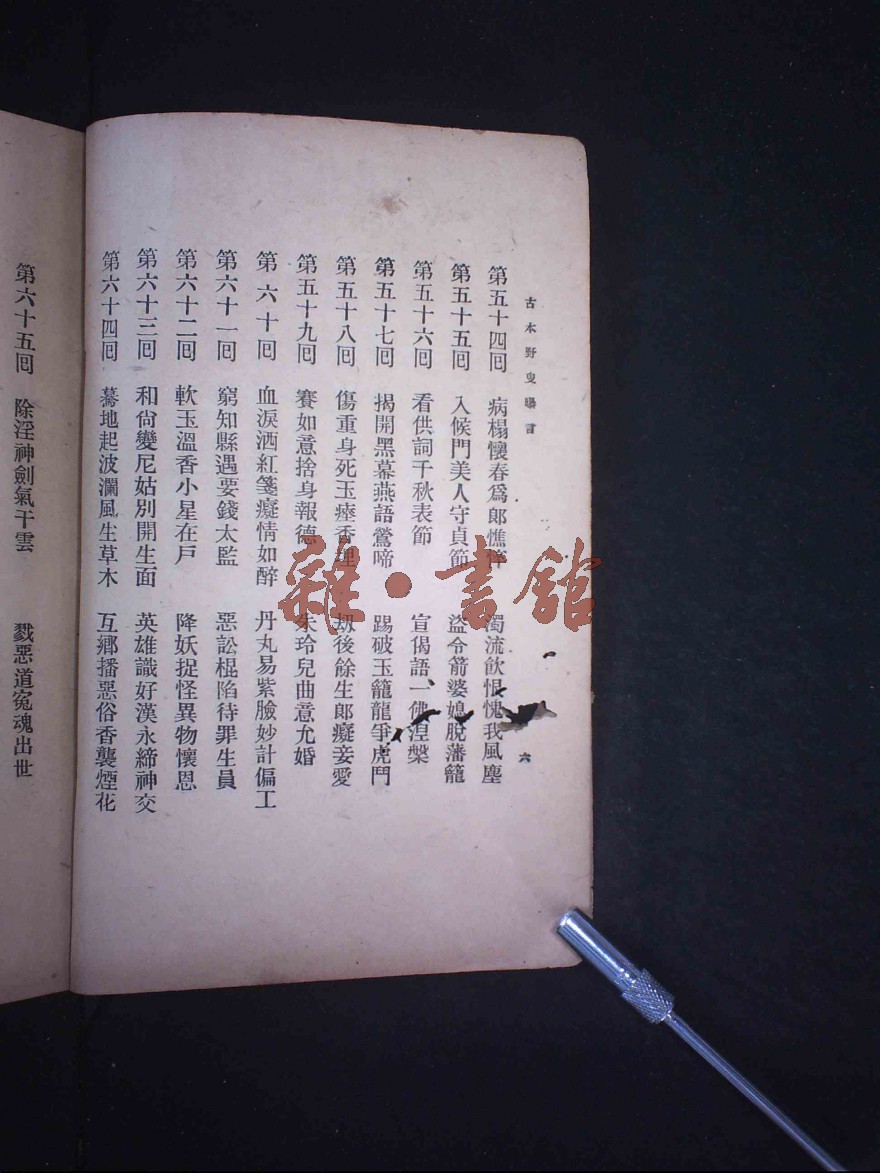 古本野叟曝言
六
第五十四囘 病榻懷春爲郎憔悴 濁流飲恨愧我風塵
第五十五囘 入候門美人守貞節 盜令箭婆媳脫藩籠
第五十六囘 看供詞千秋表節 宣偈語一佛涅槃
第五十七囘 揭開黑幕燕語鶯啼 踢破玉籠龍爭虎鬥
第五十八囘 傷重身死玉瘞香埋 刼後餘生郎癡妾愛
第五十九囘 賽如意捨身報德 朱玲兒曲意允婚
第六十囘 血淚洒紅箋癡情如醉 丹丸易紫臉妙計偏工
第六十一囘 窮知縣遇要錢太監 惡訟棍陷待罪生員
第六十二囘 軟玉溫香小星在戶 降妖捉怪異物懷恩
第六十三囘 和尙變尼姑別開生面 英雄識好漢永締神交
第六十四囘 驀地起波瀾風生草木 互鄉播惡俗香襲煙花
第六十五囘 除淫神劍氣干雲 戮惡道寃魂出世
雜·書館